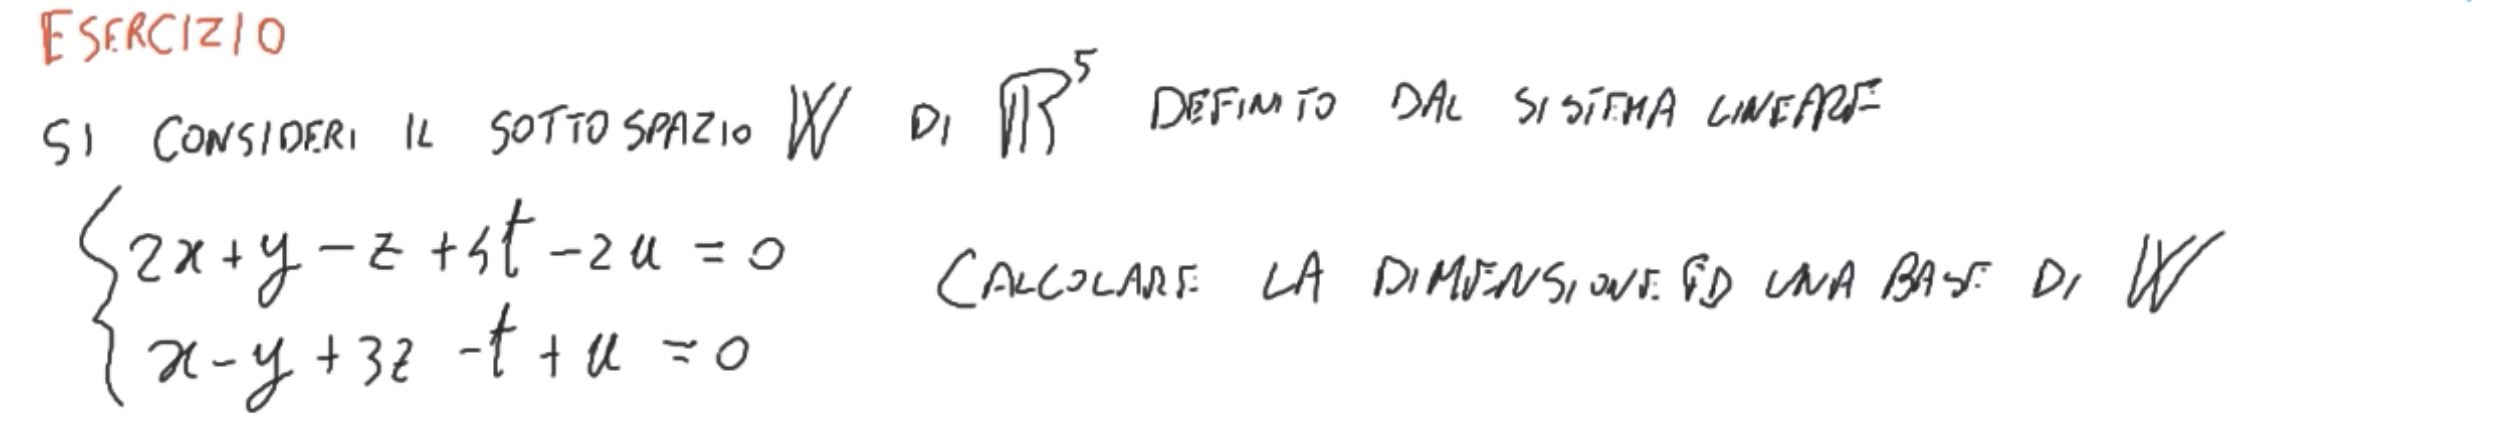 ESERCIZIO
SI CONSIDERI IL SOTTOSPAZIO W DI ℝ⁵ DEFINITO DAL SISTEMA LINEARE
2x+y-z+5t-2u=0 CALCOLARE LA DIMENSIONE ED UNA BASE DI W
x-y+3z-t+u=0